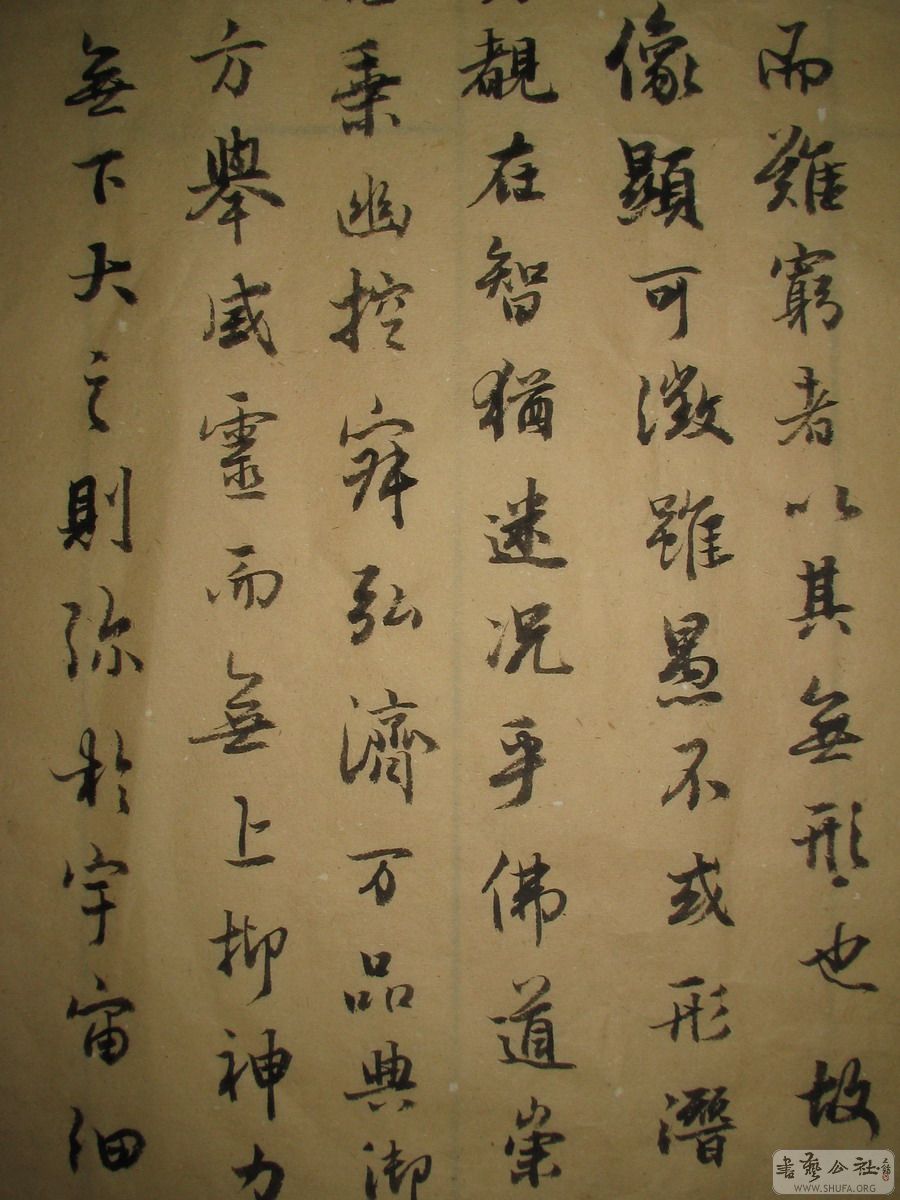 而難窮者以其無形也故
像顯可徵雖愚不惑形潛
覩在智猶迷况乎佛道崇
乘幽控寂弘濟万品典御
方舉威靈而無上抑神力
無下大之則弥於宇宙細
書藝公社
WWW.SHUFA.ORG